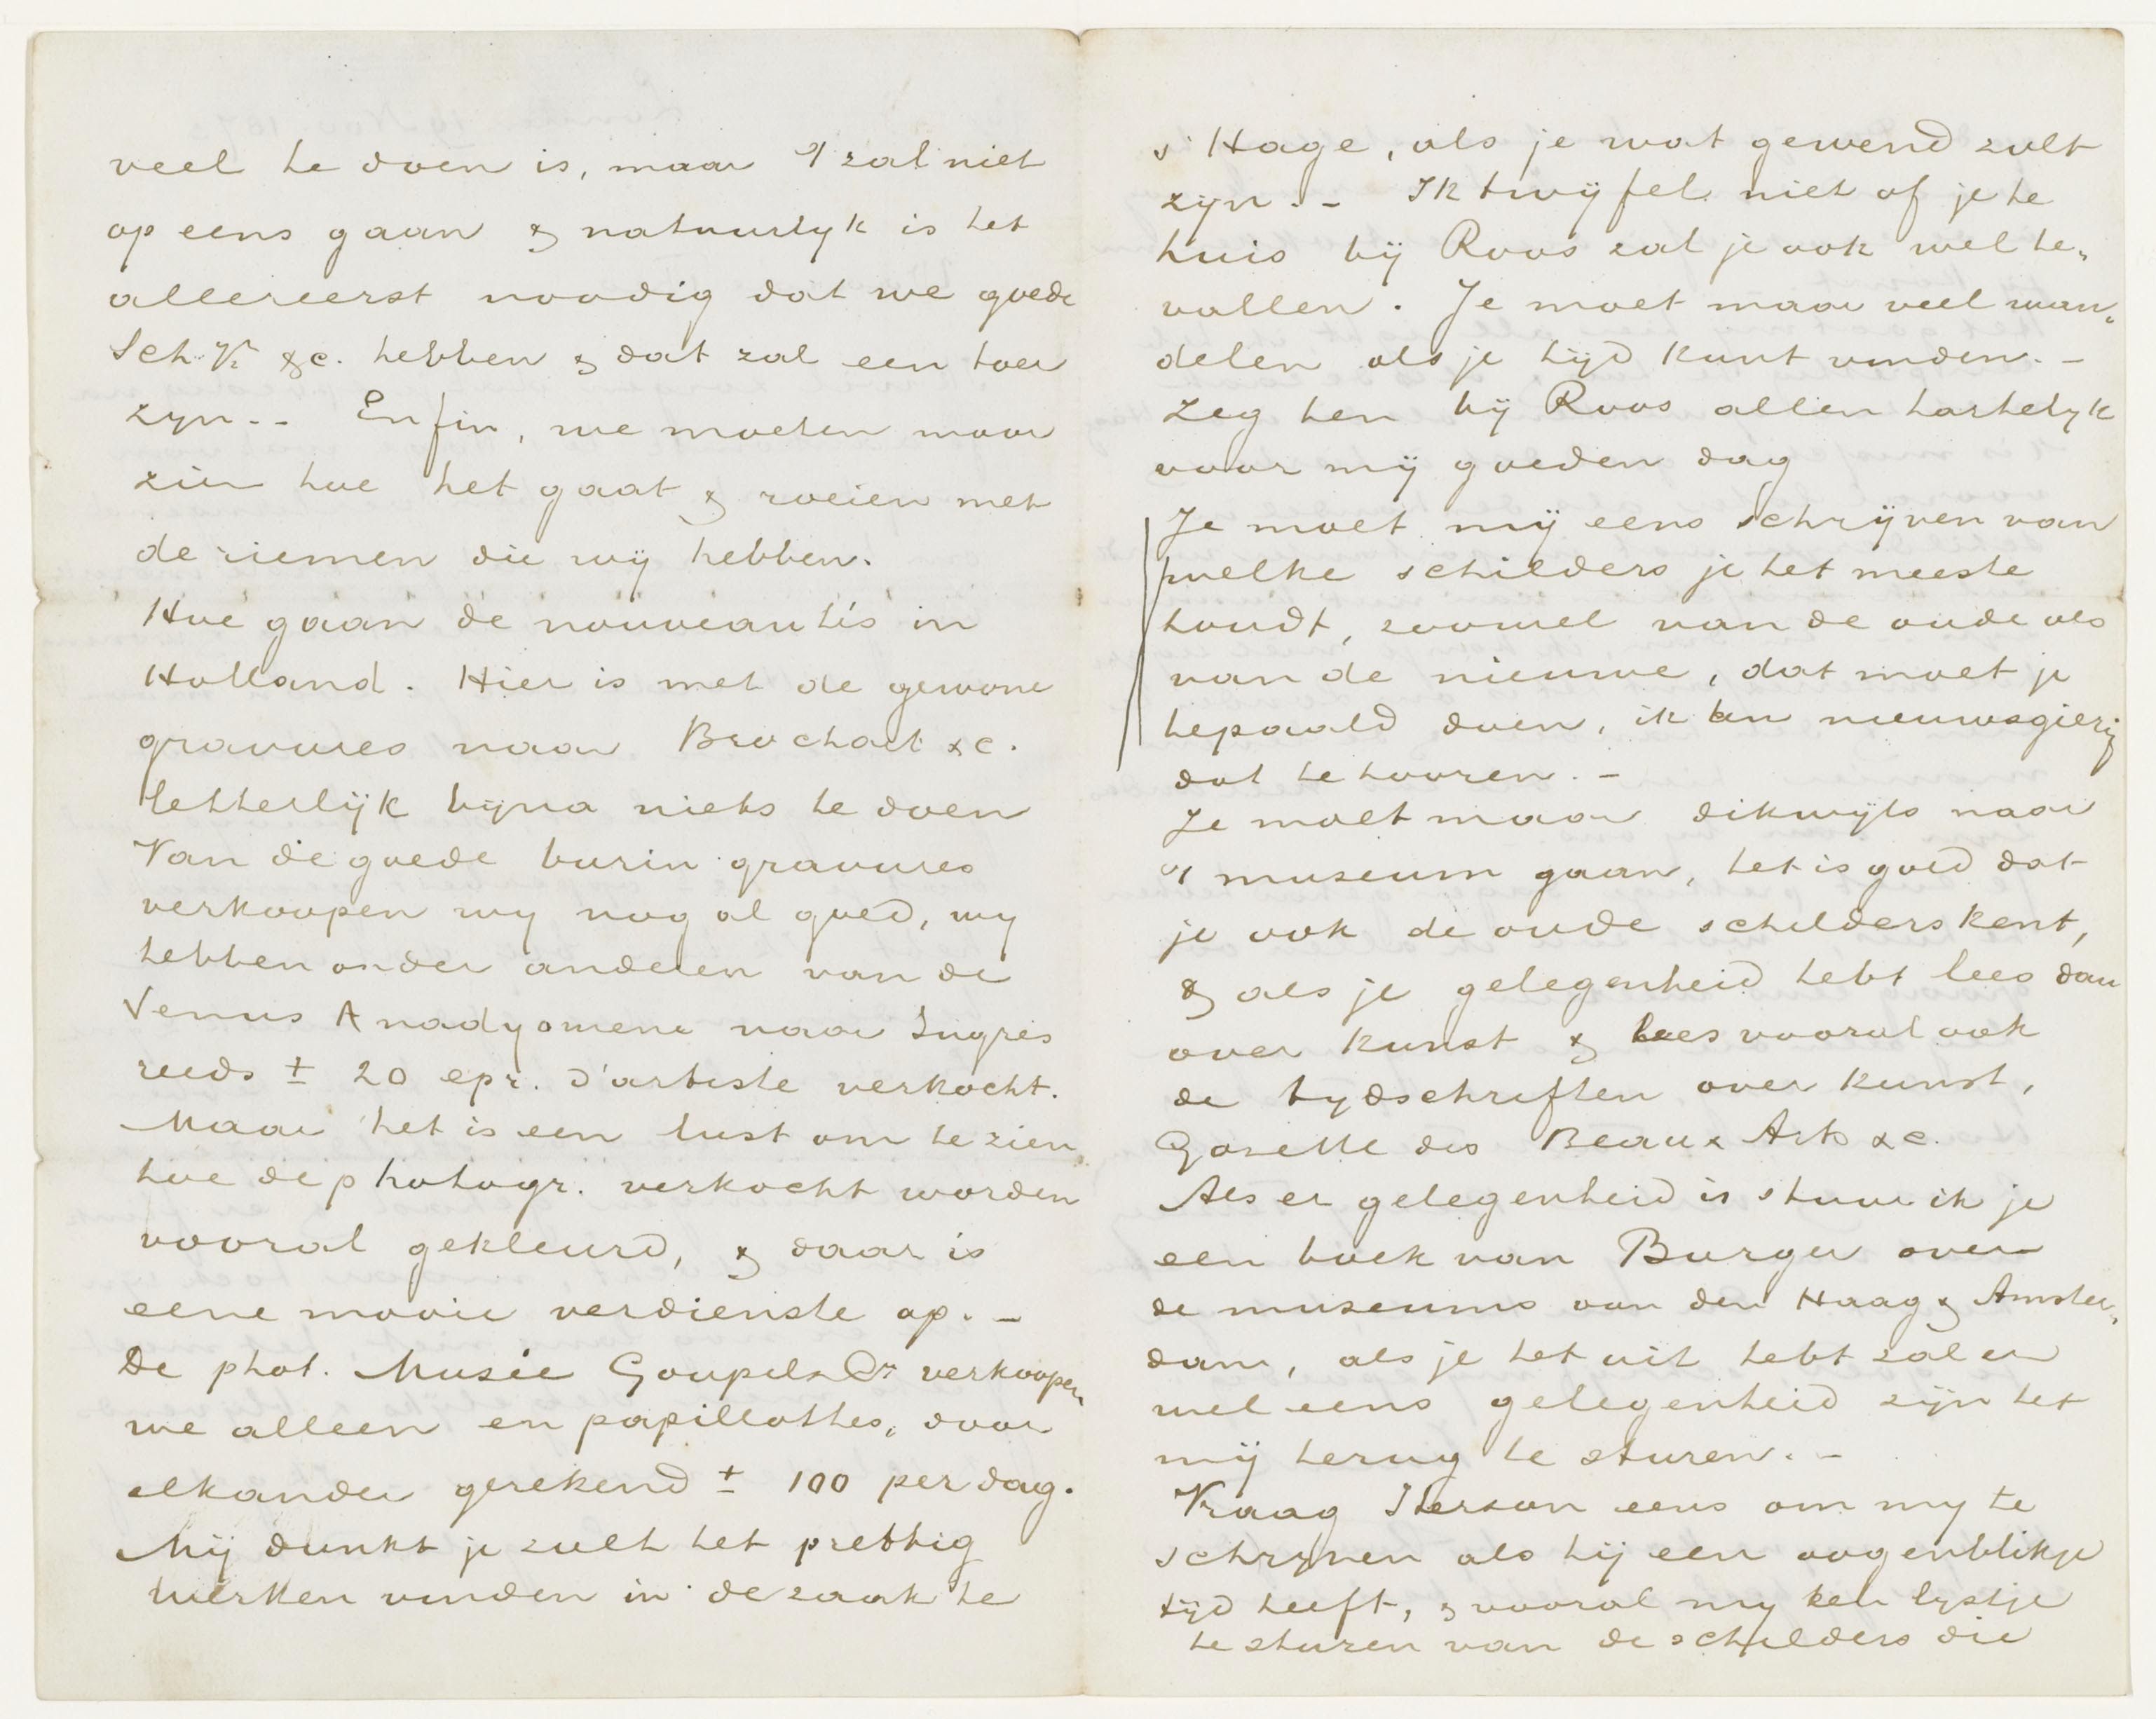 veel te doen is, maar 't zal niet
op eens gaan & natuurlyk is het
allereerst noodig dat we goede
Sch. &c. hebben & dat zal een toer
zyn.- Enfin, we moeten maar
zien hoe het gaat & roeien met
de riemen die wij hebben.
Hoe gaan de nouveautés in
Holland. Hier is met de gewone
gravures naar Brochart &c.
letterlijk bijna niets te doen
Van de goede burin gravures
verkoopen wy nog al goed, wy
hebben onder anderen van de
Venus Anadyomene naar Ingres
reeds ± 20 epr. d'artiste verkocht.
Maar het is een lust om te zien
hoe de photogr. verkocht worden
vooral gekleurd, & daar is
eene mooie verdienste op. -
De phot. Musée Goupil & Co verkoopen
we alleen en papillottes, door
elkander gerekend ± 100 per dag.
Mij dunkt je zult het prettig
werken vinden in de zaak te
s' Hage, als je wat gewend zult
zijn.- Ik twijfel niet of je te
huis bij Roos zal je ook wel be„
vallen. Je moet maar veel wan„
delen als je tijd kunt vinden. -
Zeg hen bij Roos allen hartelyk
voor mij goeden dag
Je moet mij eens schrijven van
welke schilders je het meeste
houdt, zoowel van de oude als
van de nieuwe, dat moet je
bepaald doen, ik ben nieuwsgierig
dat te hooren. -
Je moet maar dikwijls naar
't museum gaan, het is goed dat
je ook de oude schilders kent,
& als je gelegenheid hebt lees dan
over kunst & lees vooral ook
de tydschriften over kunst,
Gazette des Beaux Arts &c.
Als er gelegenheid is stuur ik je
een boek van Burger over
de museums van den Haag & Amster„
dam, als je het uit hebt zal er
wel eens gelegenheid zijn het
mij terug te sturen. -
Vraag Iterson eens om my te
schryven als hij een oogenblikje
tijd heeft, & vooral my een lystje
te sturen van de schilders die